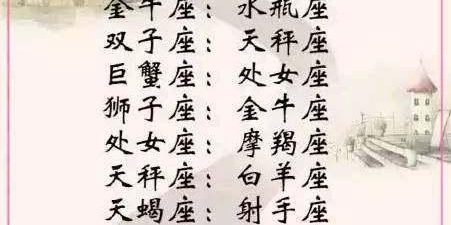 金牛座：水瓶座
双子座：天秤座
巨蟹座：处女座
狮子座：金牛座
处女座：摩羯座
天秤座：白羊座
天蝎座：射手座